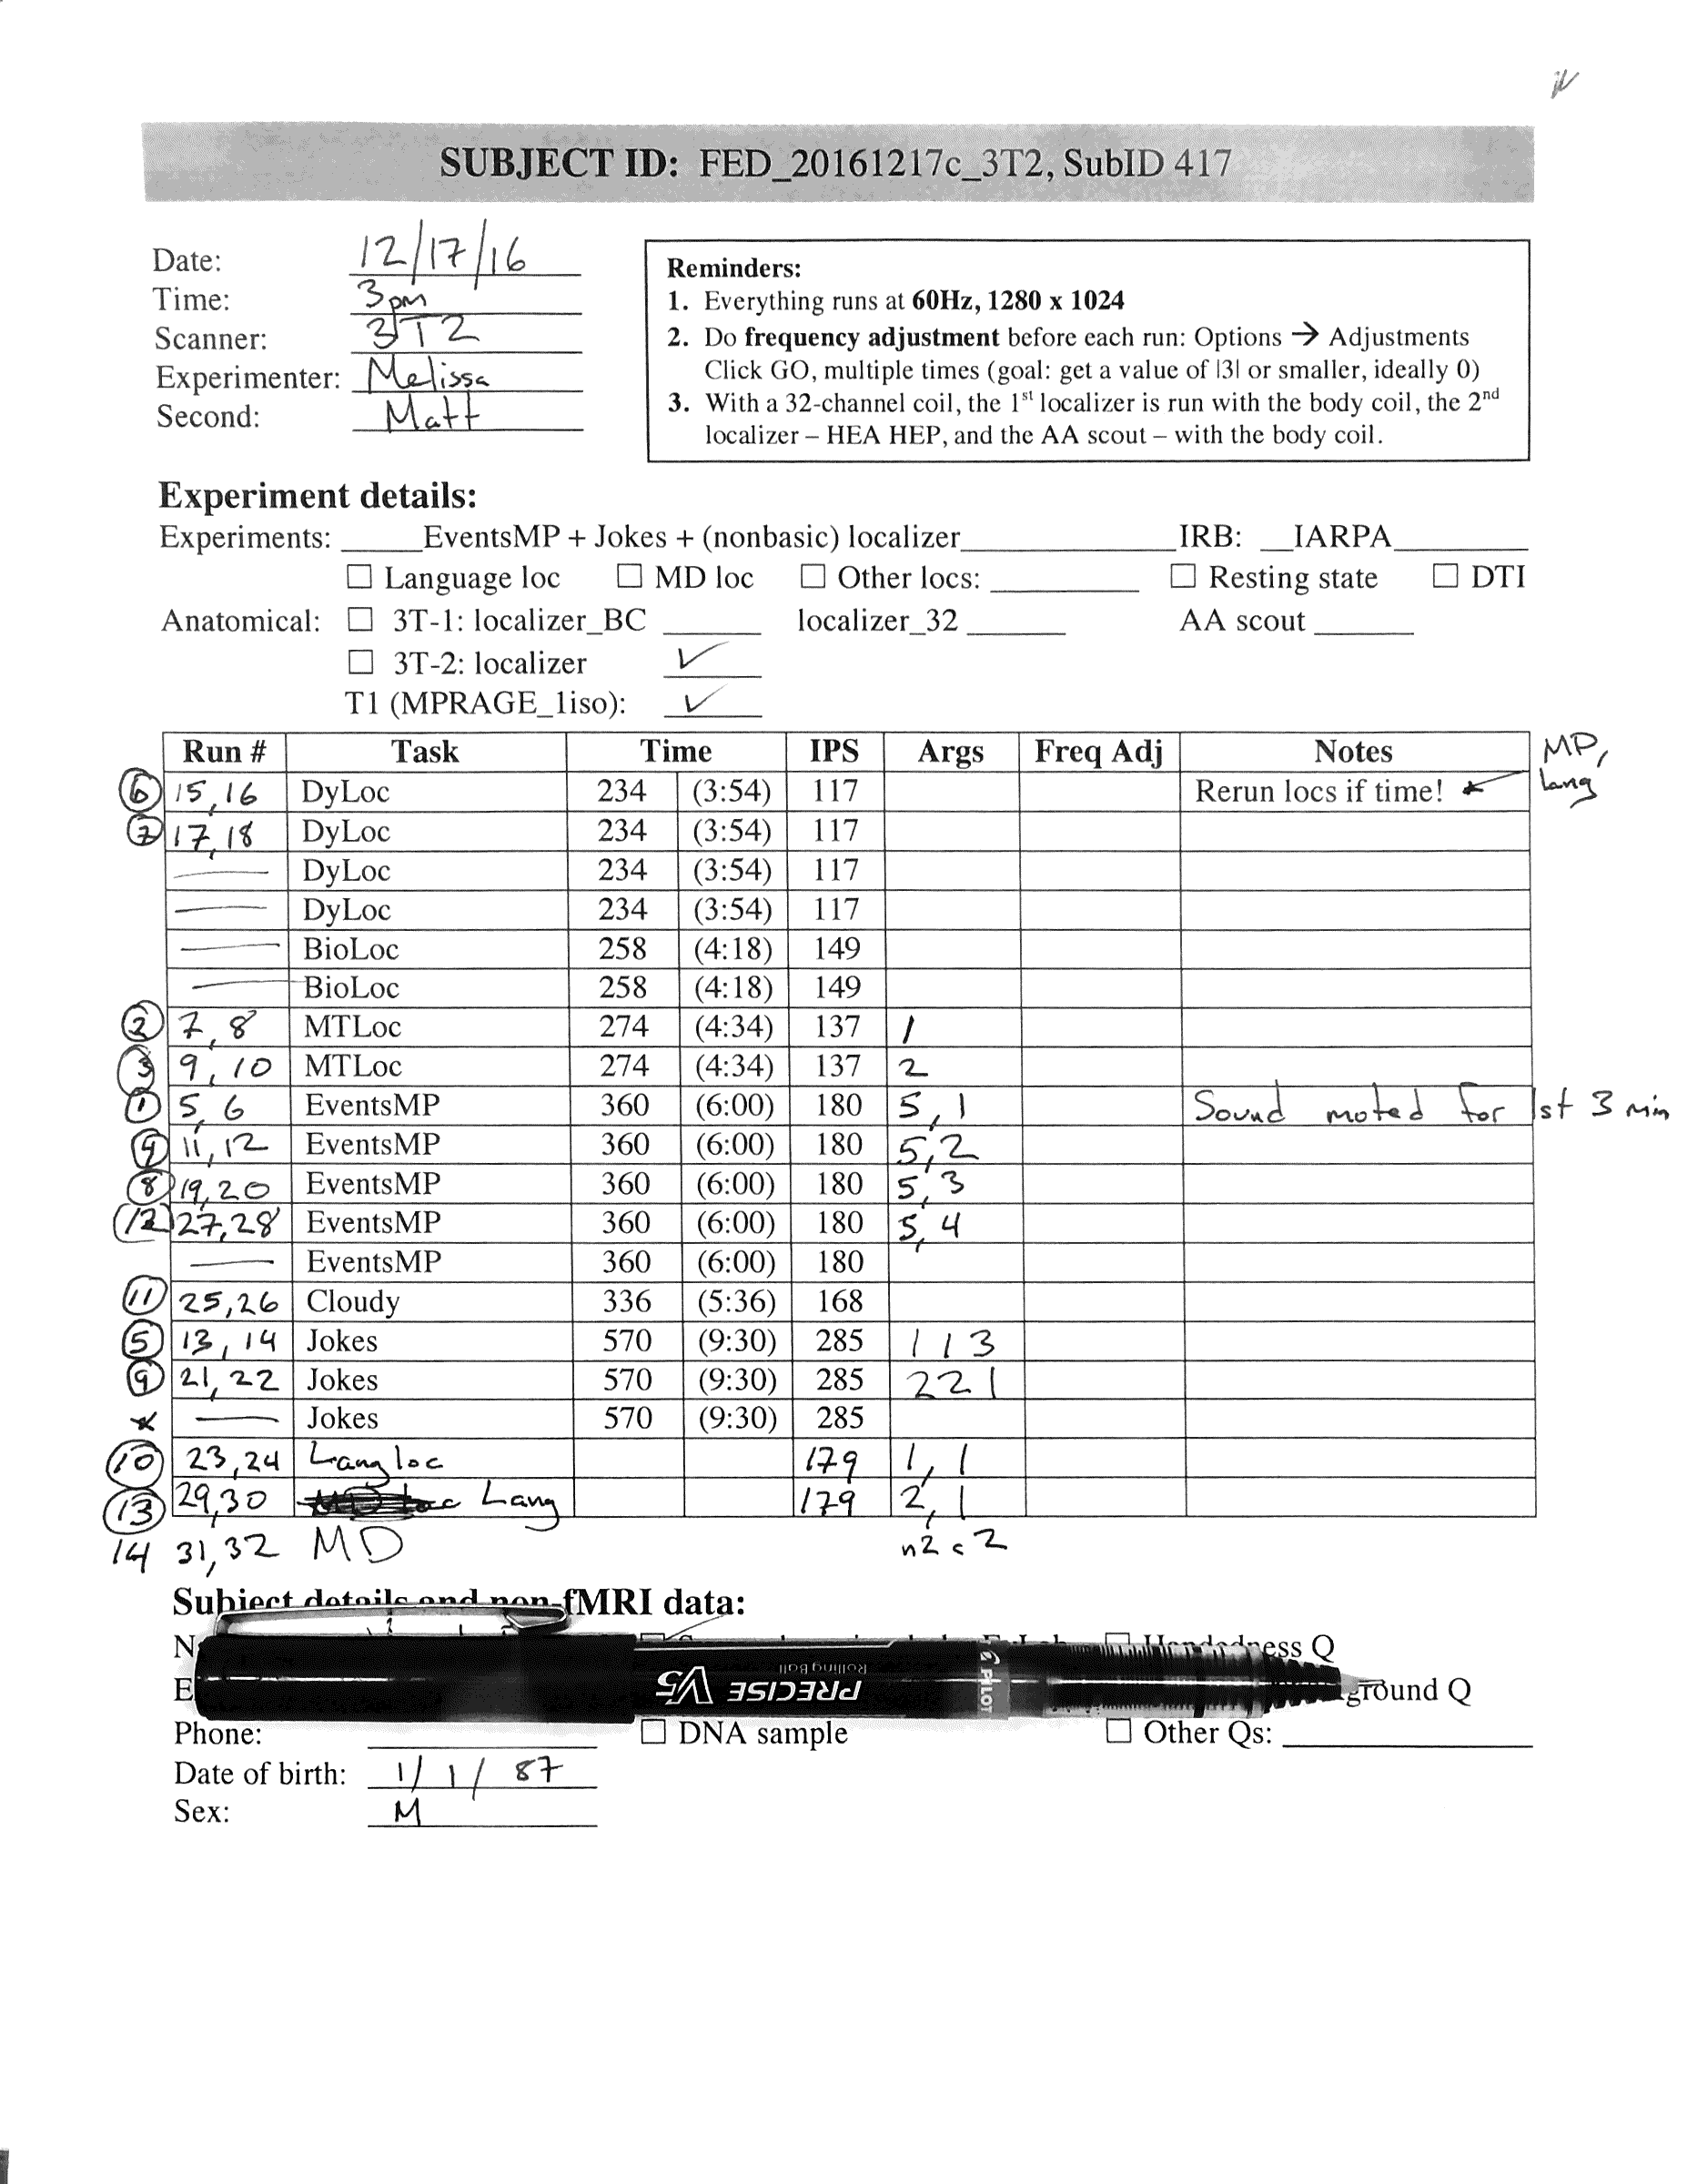 SUBJECT ID: FED_20161217c_3T2, SubID 417
Date: 12/17/16
Time: 3pm
Scanner: 3T2
Experimenter: Melissa
Second: Matt
Reminders:
1. Everything runs at 60Hz, 1280 x 1024
2. Do frequency adjustment before each run: Options → Adjustments
Click GO, multiple times (goal: get a value of |3| or smaller, ideally 0)
3. With a 32-channel coil, the 1st localizer is run with the body coil, the 2nd
localizer – HEA HEP, and the AA scout – with the body coil.
Experiment details:
Experiments: EventsMP + Jokes + (nonbasic) localizer IRB: IARPA
☐ Language loc ☐ MD loc ☐ Other locs: ☐ Resting state ☐ DTI
Anatomical: ☐ 3T-1: localizer_BC localizer_32 AA scout
☐ 3T-2: localizer ✓
T1 (MPRAGE_1iso): ✓
Run # Task Time IPS Args Freq Adj Notes MP,
6 15,16 DyLoc 234 (3:54) 117 Rerun locs if time! Lang
7 17,18 DyLoc 234 (3:54) 117
— DyLoc 234 (3:54) 117
— DyLoc 234 (3:54) 117
— BioLoc 258 (4:18) 149
— BioLoc 258 (4:18) 149
2 7,8 MTLoc 274 (4:34) 137 1
3 9,10 MTLoc 274 (4:34) 137 2
1 5,6 EventsMP 360 (6:00) 180 5,1 Sound moted for 1st 3 min
4 11,12 EventsMP 360 (6:00) 180 5,2
8 19,20 EventsMP 360 (6:00) 180 5,3
12 27,28 EventsMP 360 (6:00) 180 5,4
— EventsMP 360 (6:00) 180
11 25,26 Cloudy 336 (5:36) 168
5 13,14 Jokes 570 (9:30) 285 1 1 3
9 21,22 Jokes 570 (9:30) 285 2 2 1
* — Jokes 570 (9:30) 285
10 23,24 Lang loc 179 1,1
13 29,30 Lang 179 2,1
14 31,32 MD n2 c2
Subject details and non-fMRI data:
Handedness Q
PRECISE V5
Rolling Ball
PILOT
ground Q
Phone: ☐ DNA sample ☐ Other Qs:
Date of birth: 1/1/87
Sex: M